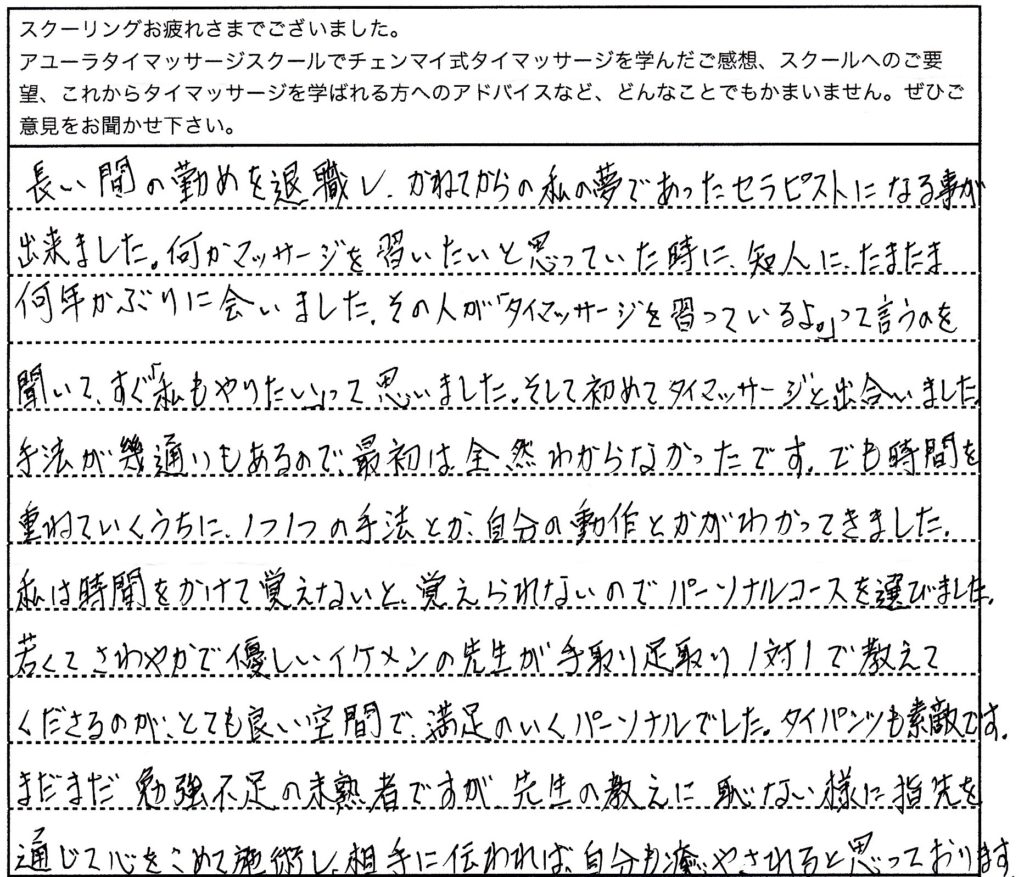 スクーリングお疲れさまでございました。
アユーラタイマッサージスクールでチェンマイ式タイマッサージを学んだご感想、スクールへのご要
望、これからタイマッサージを学ばれる方へのアドバイスなど、どんなことでもかまいません。ぜひご
意見をお聞かせ下さい。
長い間の勤めを退職し、かねてからの私の夢であったセラピストになる事が
出来ました。何かマッサージを習いたいと思っていた時に、知人に、たまたま
何年かぶりに会いました。その人が「タイマッサージを習っているよ。」って言うのを
聞いて、すぐ「私もやりたい」って思いました。そして初めてタイマッサージと出合いました。
手法が幾通りもあるので、最初は全然わからなかったです。でも時間を
重ねていくうちに、1つ1つの手法とか、自分の動作とかがわかってきました。
私は時間をかけて覚えないと、覚えられないのでパーソナルコースを選びました。
若くてさわやかで優しいイケメンの先生が手取り足取り1対1で教えて
くださるのが、とても良い空間で、満足のいくパーソナルでした。タイパンツも素敵です。
まだまだ勉強不足の未熟者ですが、先生の教えに恥じない様に指先を
通じて心をこめて施術し、相手に伝われば、自分も癒やされると思っております。